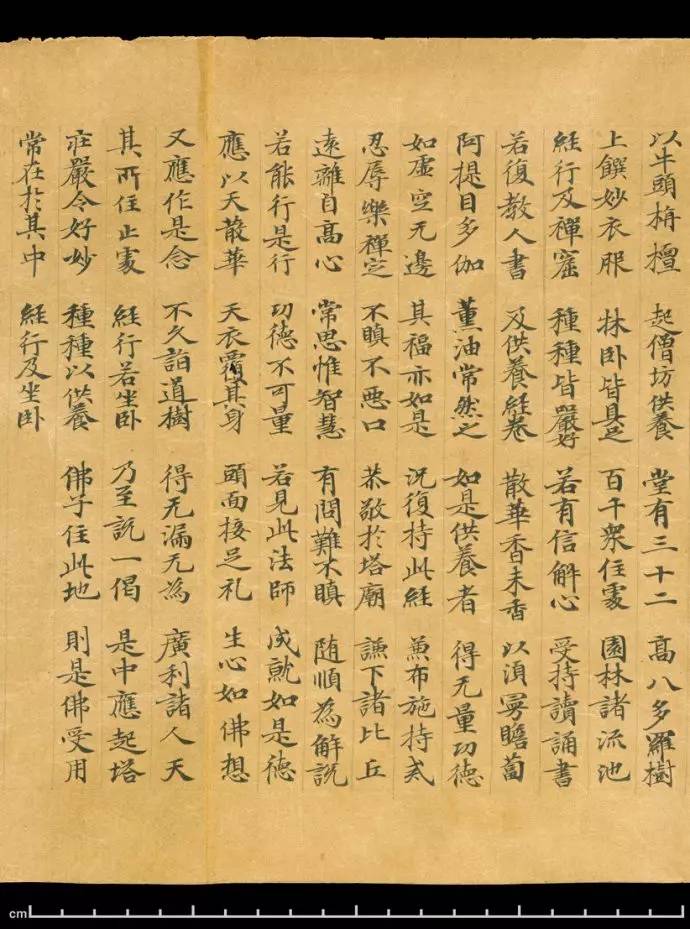 以牛頭栴檀 起僧坊供養 堂有三十二 高八多羅樹
上饌妙衣服 牀卧皆具足 百千衆住處 園林諸流池
經行及禪窟 種種皆嚴好 若有信解心 受持讀誦書
若復教人書 及供養經卷 散華香末香 以湏曼瞻蔔
阿提目多伽 薰油常然之 如是供養者 得无量功德
如虛空无邊 其福亦如是 況復持此經 兼布施持戒
忍辱樂禪定 不瞋不惡口 恭敬於塔廟 謙下諸比丘
遠離自高心 常思惟智慧 有問難不瞋 随順為解說
若能行是行 功德不可量 若見此法師 成就如是德
應以天散華 天衣覆其身 頭面接足礼 生心如佛想
又應作是念 不久詣道樹 得无漏无為 廣利諸人天
其所住止處 經行若坐卧 乃至說一偈 是中應起塔
莊嚴令好妙 種種以供養 佛子住此地 則是佛受用
常在於其中 經行及坐卧
cm